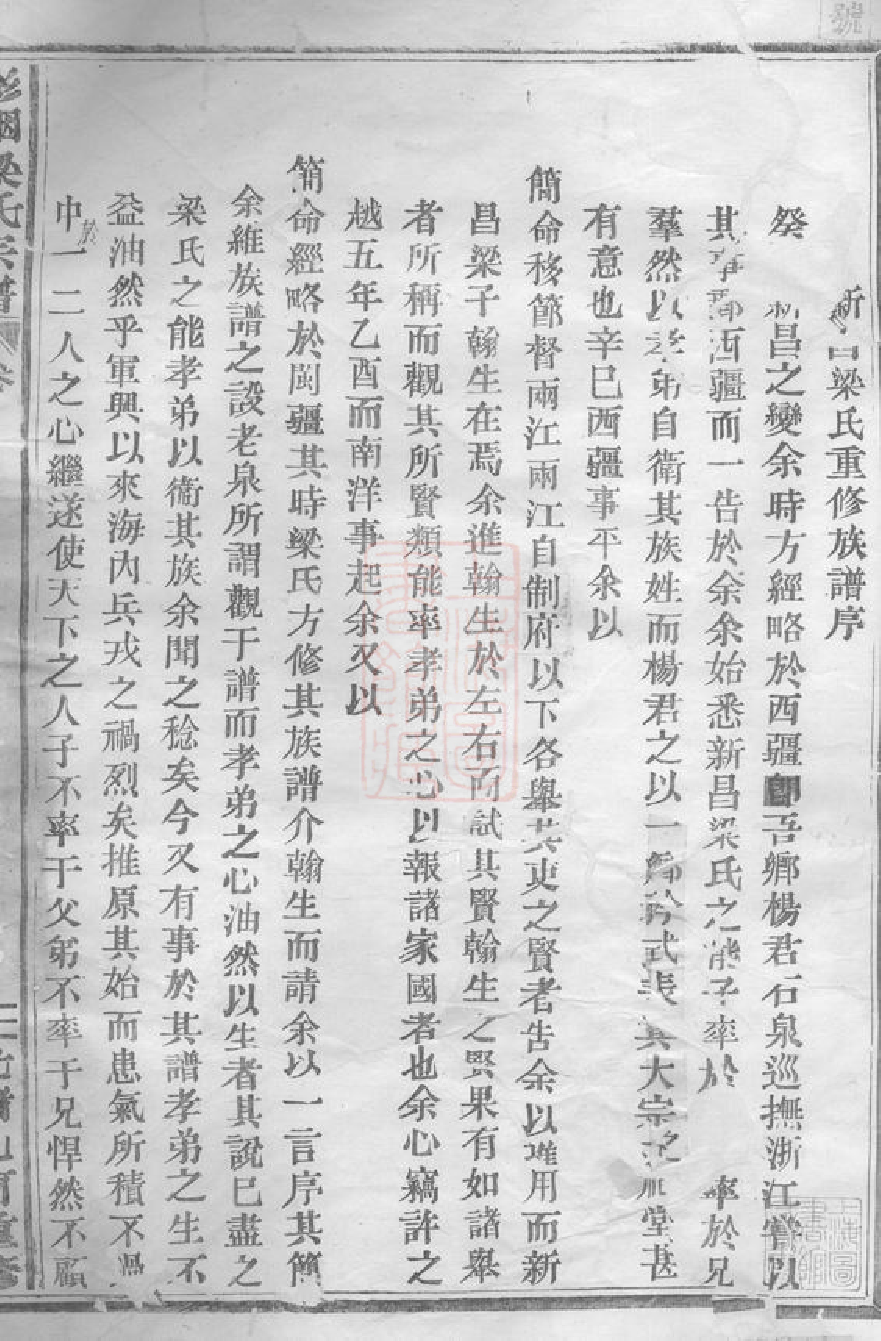 號
新昌梁氏重修族譜序
癸 昌之變余時方經略於西疆吾鄉楊君石泉巡撫浙江嘗以
其事郵西疆而一告於余余始悉新昌梁氏之能子率於 率於兄
羣然以孝弟自衛其族姓而楊君之以一 式表其大宗之 堂甚
有意也辛巳西疆事平余以
簡命移節督兩江兩江自制府以下各舉其吏之賢者告余以 用而新
昌梁子翰生在焉余進翰生於左右而試其賢翰生之賢果有如諸舉
者所稱而觀其所賢類能率孝弟之心以報諸家國者也余心竊許之
越五年乙酉而南洋事起余又以
簡命經略於閩疆其時梁氏方修其族譜介翰生而請余以一言序其簡
余維族譜之設老泉所謂觀于譜而孝弟之心油然以生者其說已盡之
梁氏之能孝弟以衛其族余聞之稔矣今又有事於其譜孝弟之生不
益油然乎軍興以來海內兵戎之禍烈矣推原其始而患氣所積不過
中於一二人之心繼遂使天下之人子不率于父弟不率于兄悍然不顧
梁氏宗譜 卷
上海圖書館藏